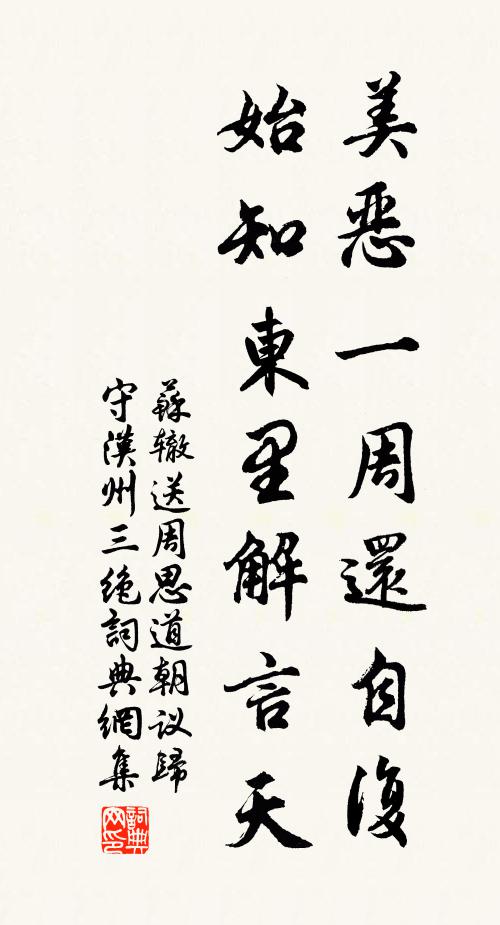 美惡一周還自復
始知東里解言天
蘇辙送周思道朝议歸
守漢州三絶詞典網集
詞典
网印